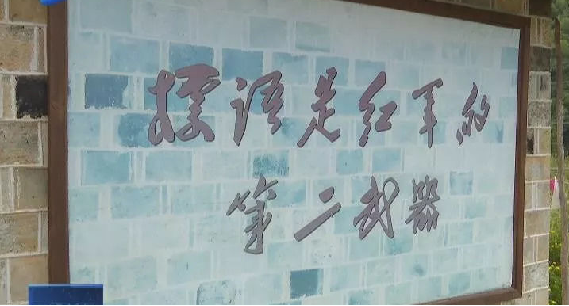 标语是红军的
第二武器